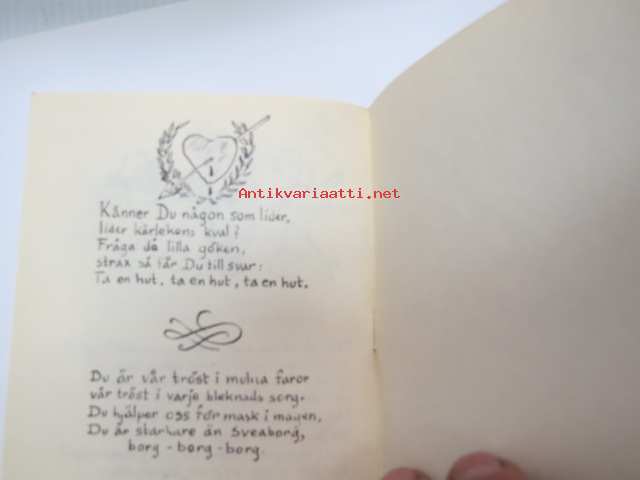 Antikvariaatti.net
Känner Du någon som lider,
lider kärlekens kval?
Fråga då lilla göken,
strax så får Du till svar:
Ta en hut, ta en hut, ta en hut.
Du är vår tröst i mulna faror
vår tröst i varje bleknads sorg.
Du hjälper oss för mask i magen,
Du är starkare än Sveaborg,
borg - borg - borg